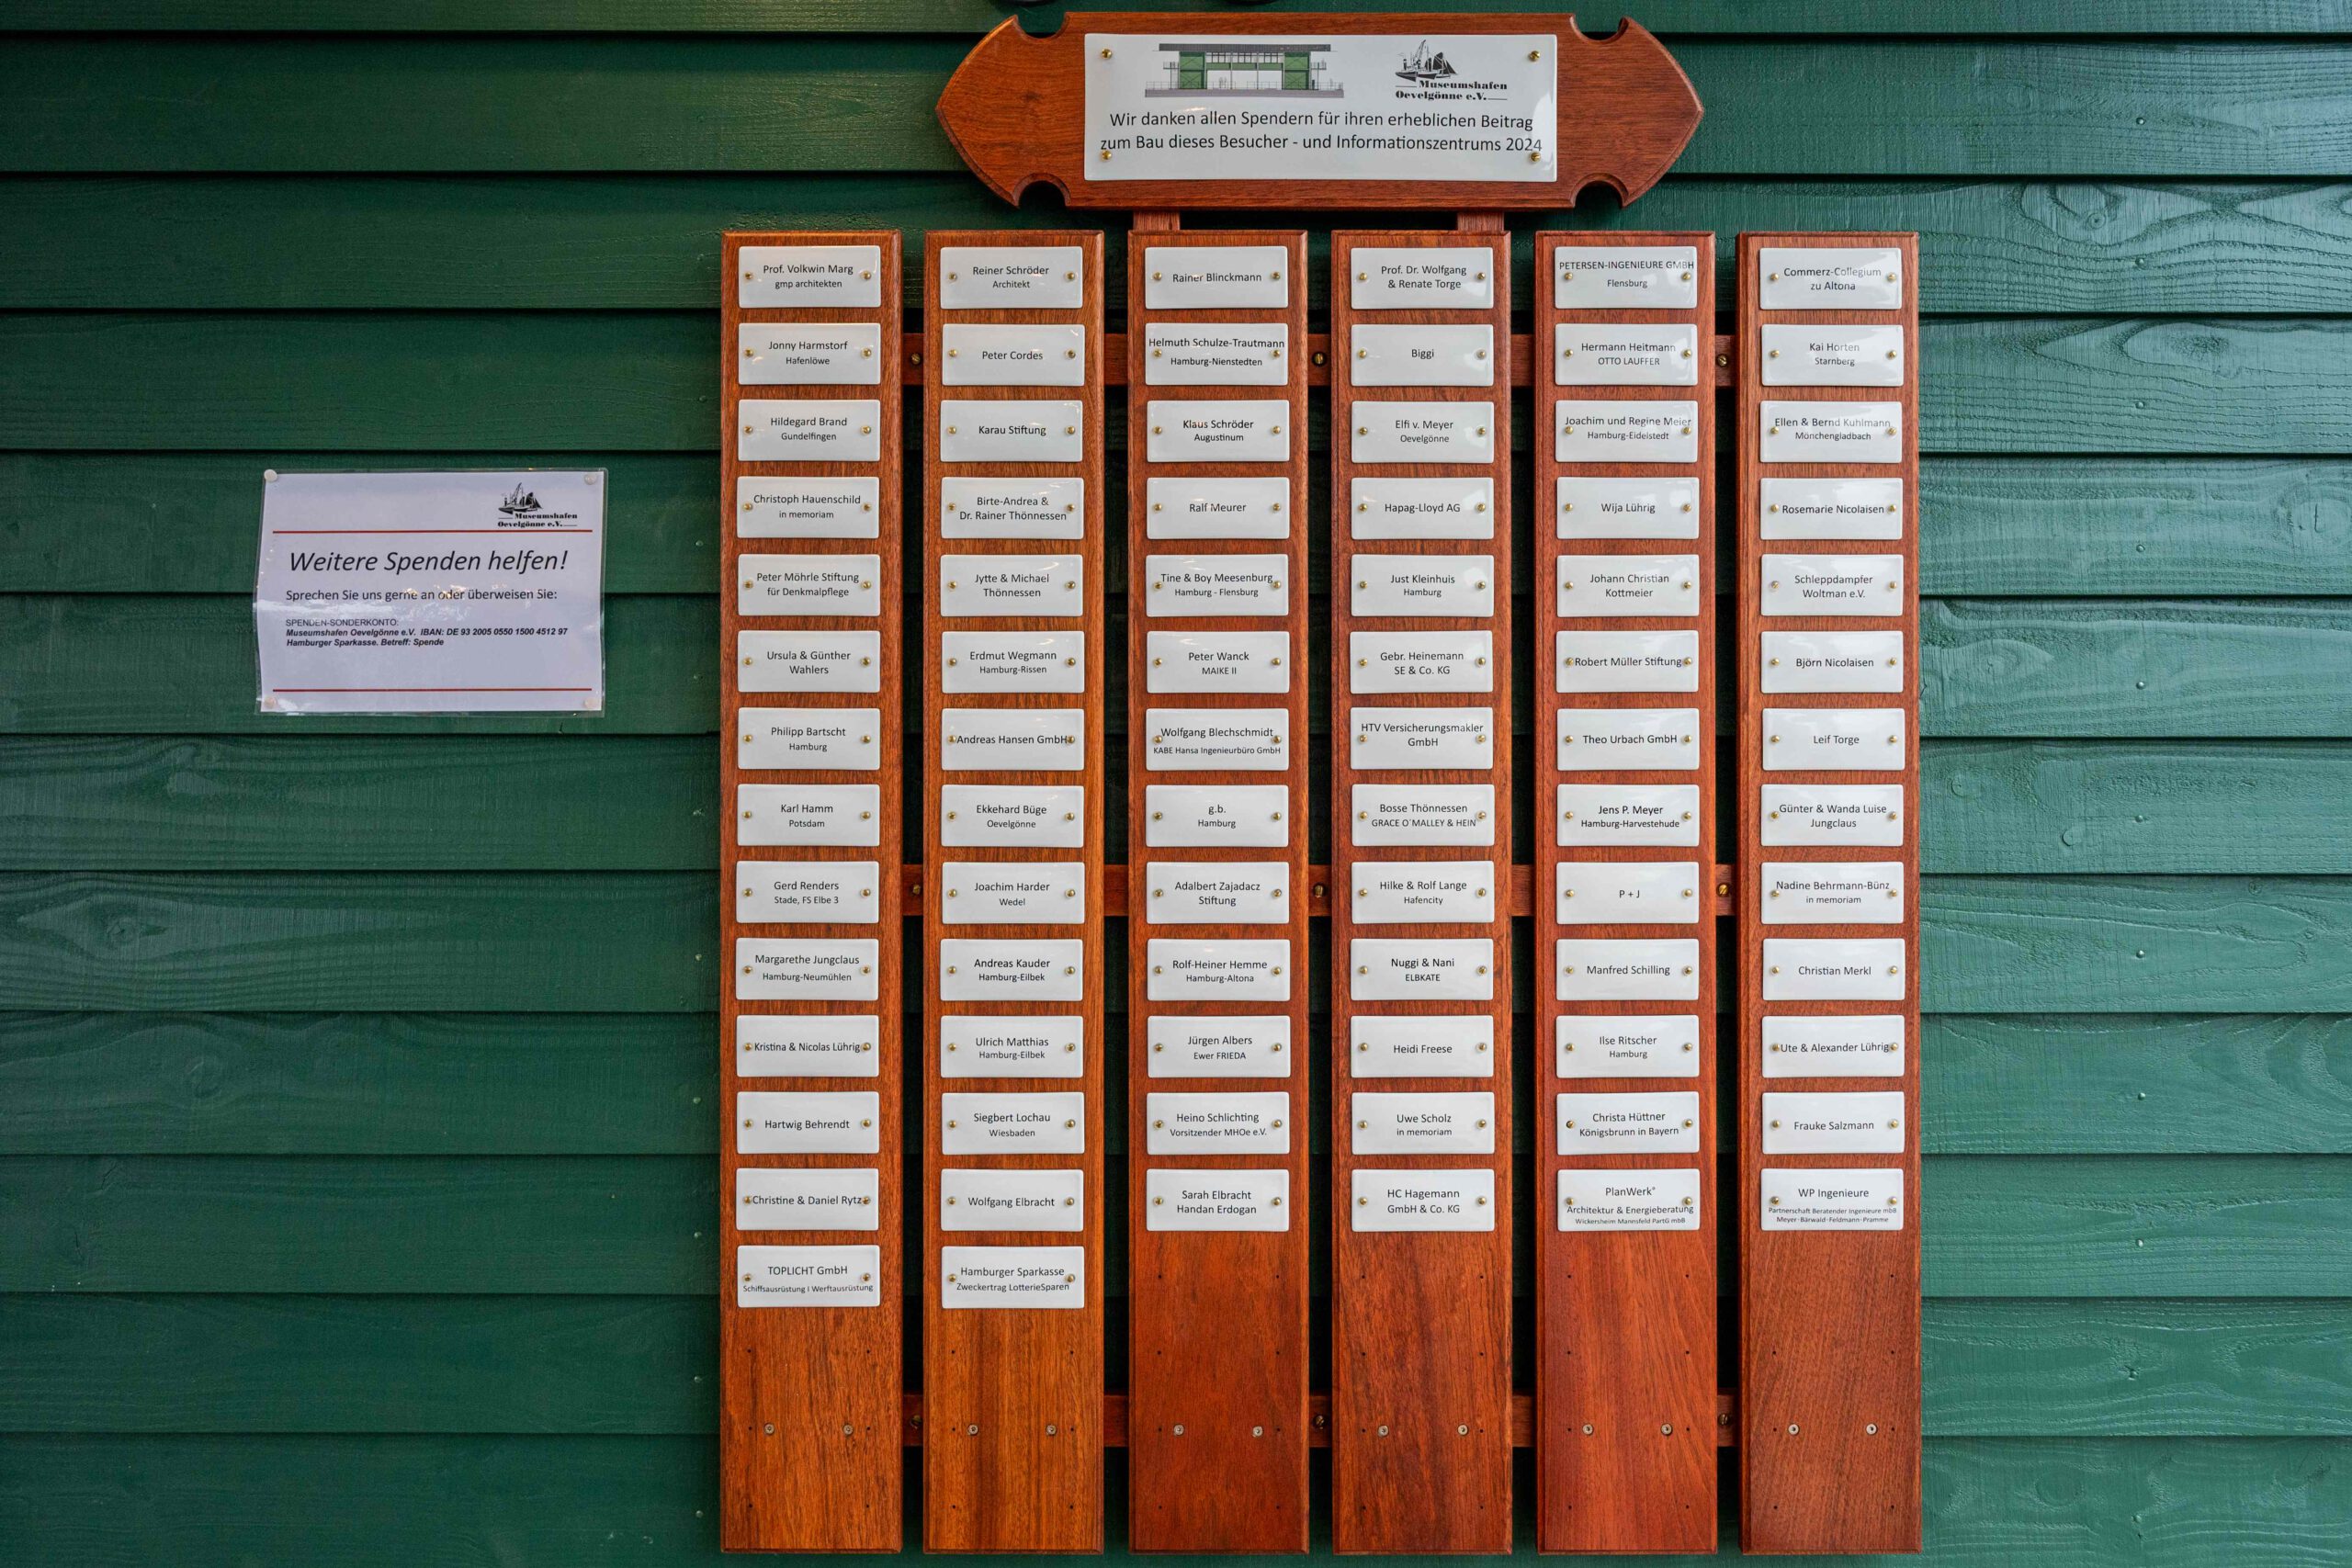 Museumshafen
Oevelgönne e.V.
Wir danken allen Spendern für ihren erheblichen Beitrag
zum Bau dieses Besucher - und Informationszentrums 2024
Museumshafen
Oevelgönne e.V.
Weitere Spenden helfen!
Sprechen Sie uns gerne an oder überweisen Sie:
SPENDEN-SONDERKONTO:
Museumshafen Oevelgönne e.V. IBAN: DE 93 2005 0550 1500 4512 97
Hamburger Sparkasse. Betreff: Spende
Prof. Volkwin Marg
gmp architekten
Jonny Harmstorf
Hafenlöwe
Hildegard Brand
Gundelfingen
Christoph Hauenschild
in memoriam
Peter Möhrle Stiftung
für Denkmalpflege
Ursula & Günther
Wahlers
Philipp Bartscht
Hamburg
Karl Hamm
Potsdam
Gerd Renders
Stade, FS Elbe 3
Margarethe Jungclaus
Hamburg-Neumühlen
Kristina & Nicolas Lührig
Hartwig Behrendt
Christine & Daniel Rytz
TOPLICHT GmbH
Schiffsausrüstung I Werftausrüstung
Reiner Schröder
Architekt
Peter Cordes
Karau Stiftung
Birte-Andrea &
Dr. Rainer Thönnessen
Jytte & Michael
Thönnessen
Erdmut Wegmann
Hamburg-Rissen
Andreas Hansen GmbH
Ekkehard Büge
Oevelgönne
Joachim Harder
Wedel
Andreas Kauder
Hamburg-Eilbek
Ulrich Matthias
Hamburg-Eilbek
Siegbert Lochau
Wiesbaden
Wolfgang Elbracht
Hamburger Sparkasse
Zweckertrag LotterieSparen
Rainer Blinckmann
Helmuth Schulze-Trautmann
Hamburg-Nienstedten
Klaus Schröder
Augustinum
Ralf Meurer
Tine & Boy Meesenburg
Hamburg - Flensburg
Peter Wanck
MAIKE II
Wolfgang Blechschmidt
KABE Hansa Ingenieurbüro GmbH
g.b.
Hamburg
Adalbert Zajadacz
Stiftung
Rolf-Heiner Hemme
Hamburg-Altona
Jürgen Albers
Ewer FRIEDA
Heino Schlichting
Vorsitzender MHOe e.V.
Sarah Elbracht
Handan Erdogan
Prof. Dr. Wolfgang
& Renate Torge
Biggi
Elfi v. Meyer
Oevelgönne
Hapag-Lloyd AG
Just Kleinhuis
Hamburg
Gebr. Heinemann
SE & Co. KG
HTV Versicherungsmakler
GmbH
Bosse Thönnessen
GRACE O´MALLEY & HEIN
Hilke & Rolf Lange
Hafencity
Nuggi & Nani
ELBKATE
Heidi Freese
Uwe Scholz
in memoriam
HC Hagemann
GmbH & Co. KG
PETERSEN-INGENIEURE GMBH
Flensburg
Hermann Heitmann
OTTO LAUFFER
Joachim und Regine Meier
Hamburg-Eidelstedt
Wija Lührig
Johann Christian
Kottmeier
Robert Müller Stiftung
Theo Urbach GmbH
Jens P. Meyer
Hamburg-Harvestehude
P + J
Manfred Schilling
Ilse Ritscher
Hamburg
Christa Hüttner
Königsbrunn in Bayern
PlanWerk°
Architektur & Energieberatung
Wickersheim Mannsfeld PartG mbB
Commerz-Collegium
zu Altona
Kai Horten
Starnberg
Ellen & Bernd Kuhlmann
Mönchengladbach
Rosemarie Nicolaisen
Schleppdampfer
Woltman e.V.
Björn Nicolaisen
Leif Torge
Günter & Wanda Luise
Jungclaus
Nadine Behrmann-Bünz
in memoriam
Christian Merkl
Ute & Alexander Lührig
Frauke Salzmann
WP Ingenieure
Partnerschaft Beratender Ingenieure mbB
Meyer·Bärwald·Feldmann·Pramme